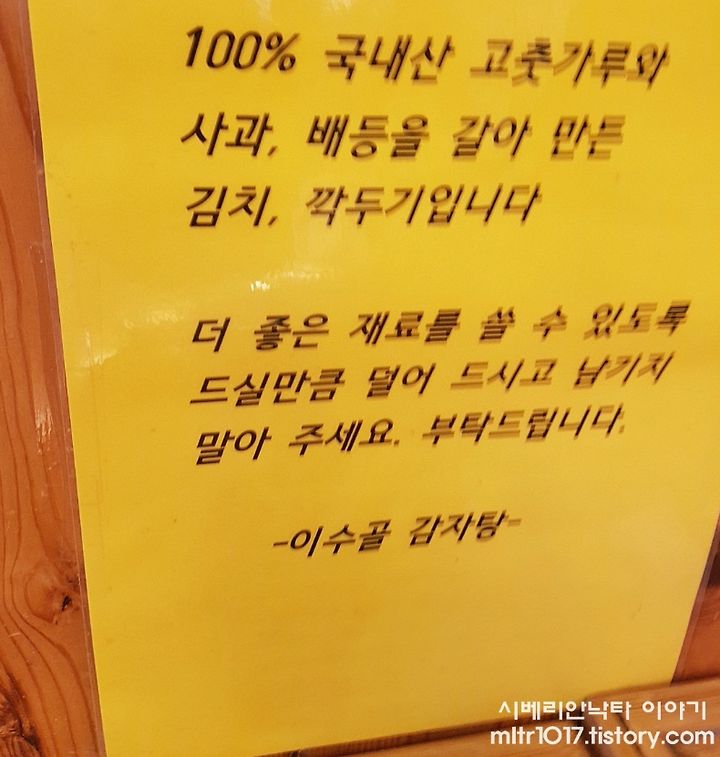 100% 국내산 고춧가루와
사과, 배등을 갈아 만든
김치, 깍두기입니다
더 좋은 재료를 쓸 수 있도록
드실만큼 덜어 드시고 남기지
말아 주세요. 부탁드립니다.
-이수골 감자탕-
시베리안낙타 이야기
mltr1017.tistory.com